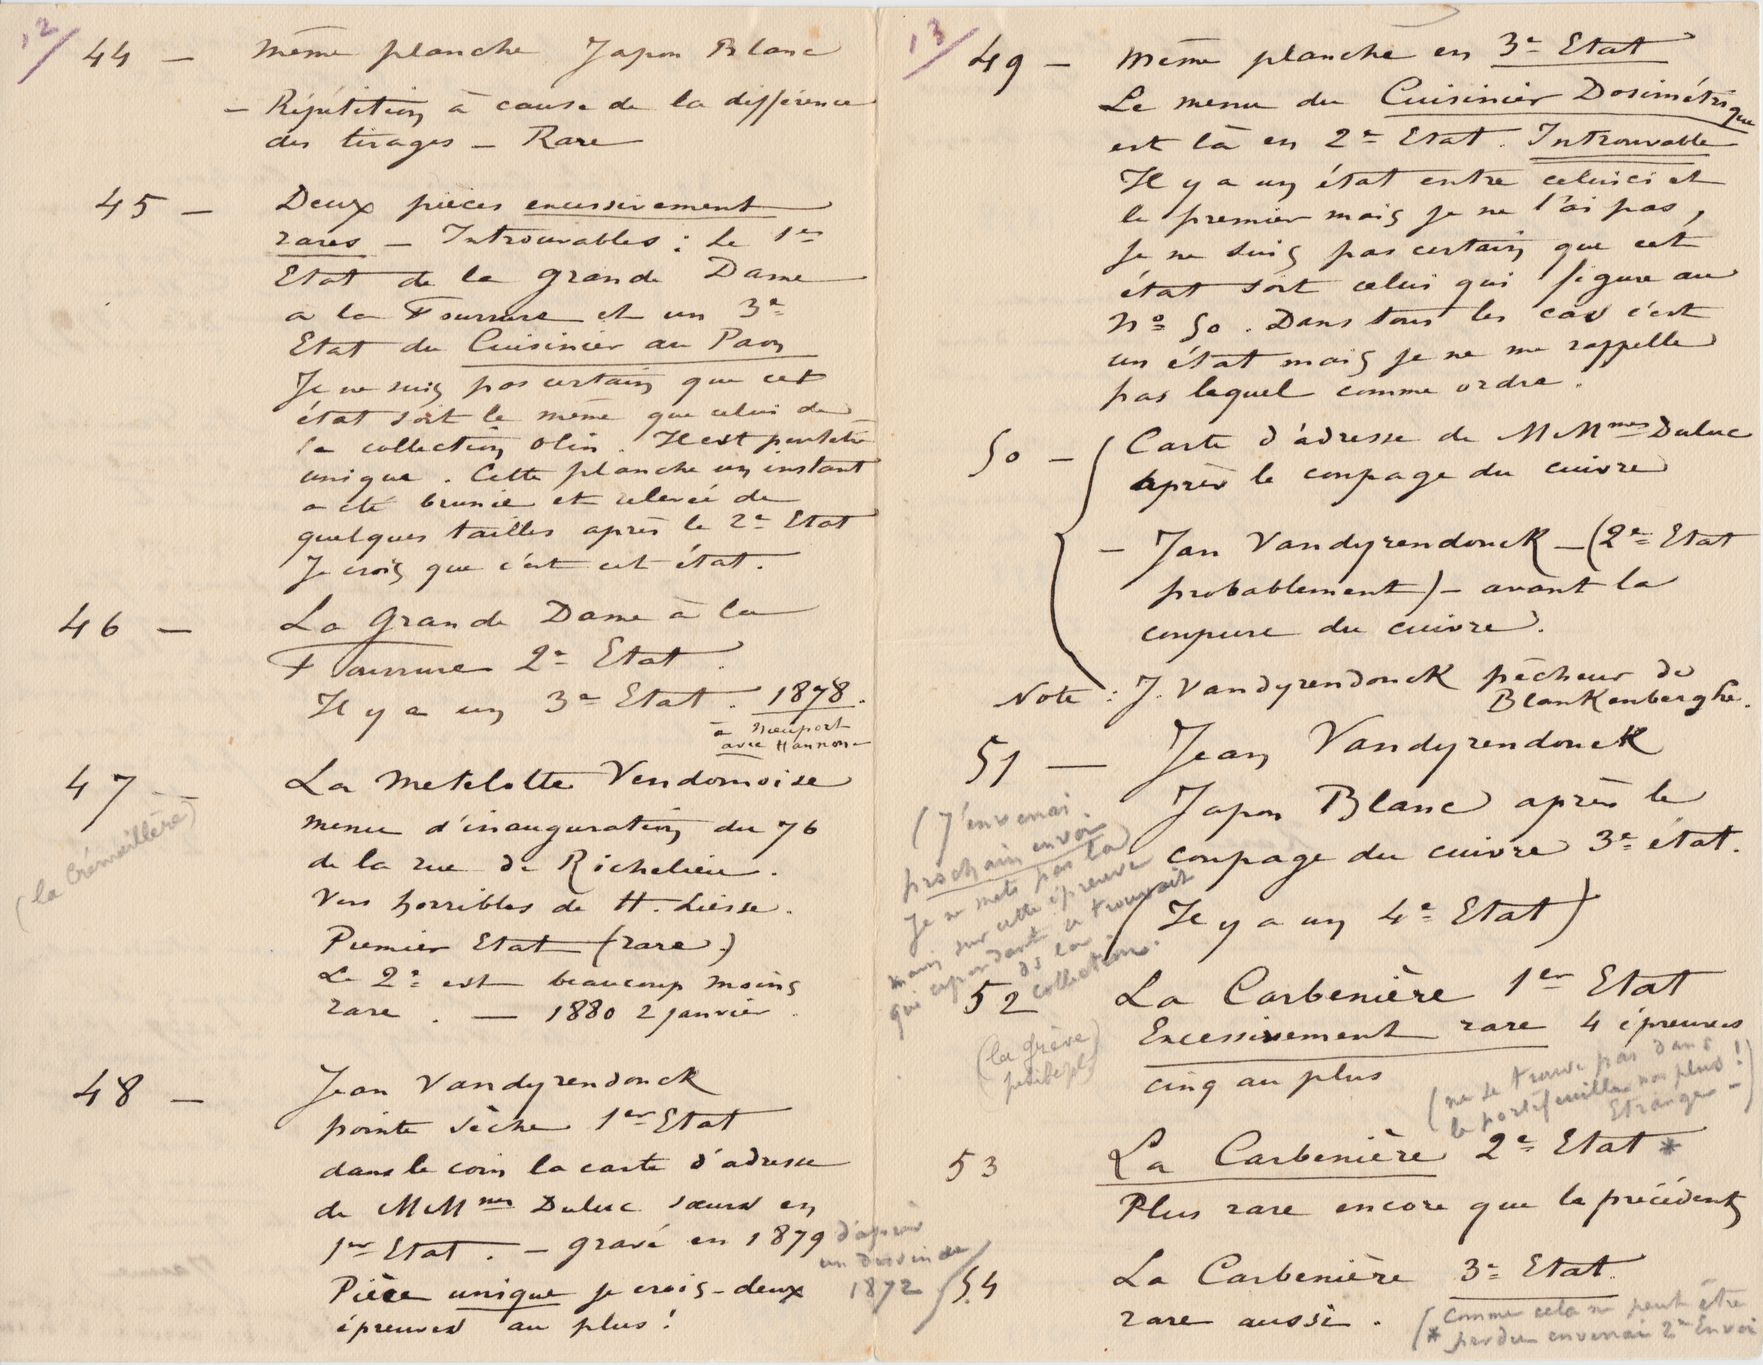 12/
44 — même planche Japon Blanc
— Répétition à cause de la différence
des tirages — Rare
45 — Deux pièces excessivement
rares — Introuvables : Le 1er
Etat de la grande Dame
a la Fourrure et un 3e
Etat du Cuisinier au Paon
Je ne suis pas certain que cet
état soit le même que celui de
la collection Olin. Il est peut être
unique. Cette planche un instant
a été brunie et relevée de
quelques tailles après le 2e Etat
Je crois que c'est cet état.
46 — La grande Dame à la
Fourrure 2e Etat.
Il y a un 3e Etat. 1878.
à Nieuport
avec Hannon
47 — La Matelotte Vendomoise
(la Crémaillère)
menu d'inauguration du 76
de la rue de Richelieu.
Vers horribles de H. Liesse.
Premier Etat (rare.)
Le 2e est beaucoup moins
rare. — 1880 2 janvier.
48 — Jean Vandyrendonck
pointe sèche 1er Etat
dans le coin la carte d'adresse
de MMmes Duluc sœurs en
1er Etat. — gravé en 1879 d'après
un dessin de
1872
Pièce unique je crois - deux
épreuves au plus !
13/
49 — même planche en 3e Etat
Le menu du Cuisinier Dosimétrique
est là en 2e Etat. Introuvable
Il y a un état entre celuici et
le premier mais je ne l'ai pas,
Je ne suis pas certain que cet
état soit celui qui figure au
No 50. Dans tous les cas c'est
un état mais je ne me rappelle
pas lequel comme ordre.
50 — Carte d'adresse de MMmes Duluc
après le coupage du cuivre
— Jan Vandyrendonck — (2e Etat
probablement) — avant la
coupure du cuivre.
Note : J. Vandyrendonck pêcheur de
Blankenberghe.
51 — Jean Vandyrendonck
Japon Blanc après le
coupage du cuivre 3e état.
(Il y a un 4e Etat)
(J'enverrai
prochain envoi
Je ne mets pas la
main sur cette épreuve
qui cependant se trouvait
ds la
collection.
52 La Carbenière 1er Etat
(la grève)
Excessivement rare 4 épreuves
cinq au plus
(ne se trouve pas dans
le portefeuille non plus !
Etrange —)
53 La Carbenière 2e Etat *
Plus rare encore que le précédent
54 La Carbenière 3e Etat.
rare aussi.
(comme cela ne peut être
* perdu enverrai 2e Envoi